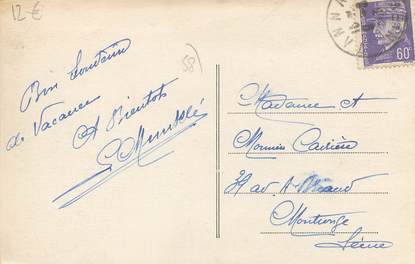 12-€
58
60
Bon Souvenir
de Vacance
A Bientôt
Madame et
Monsieur
39 av. A. Briand
Montrouge
Seine